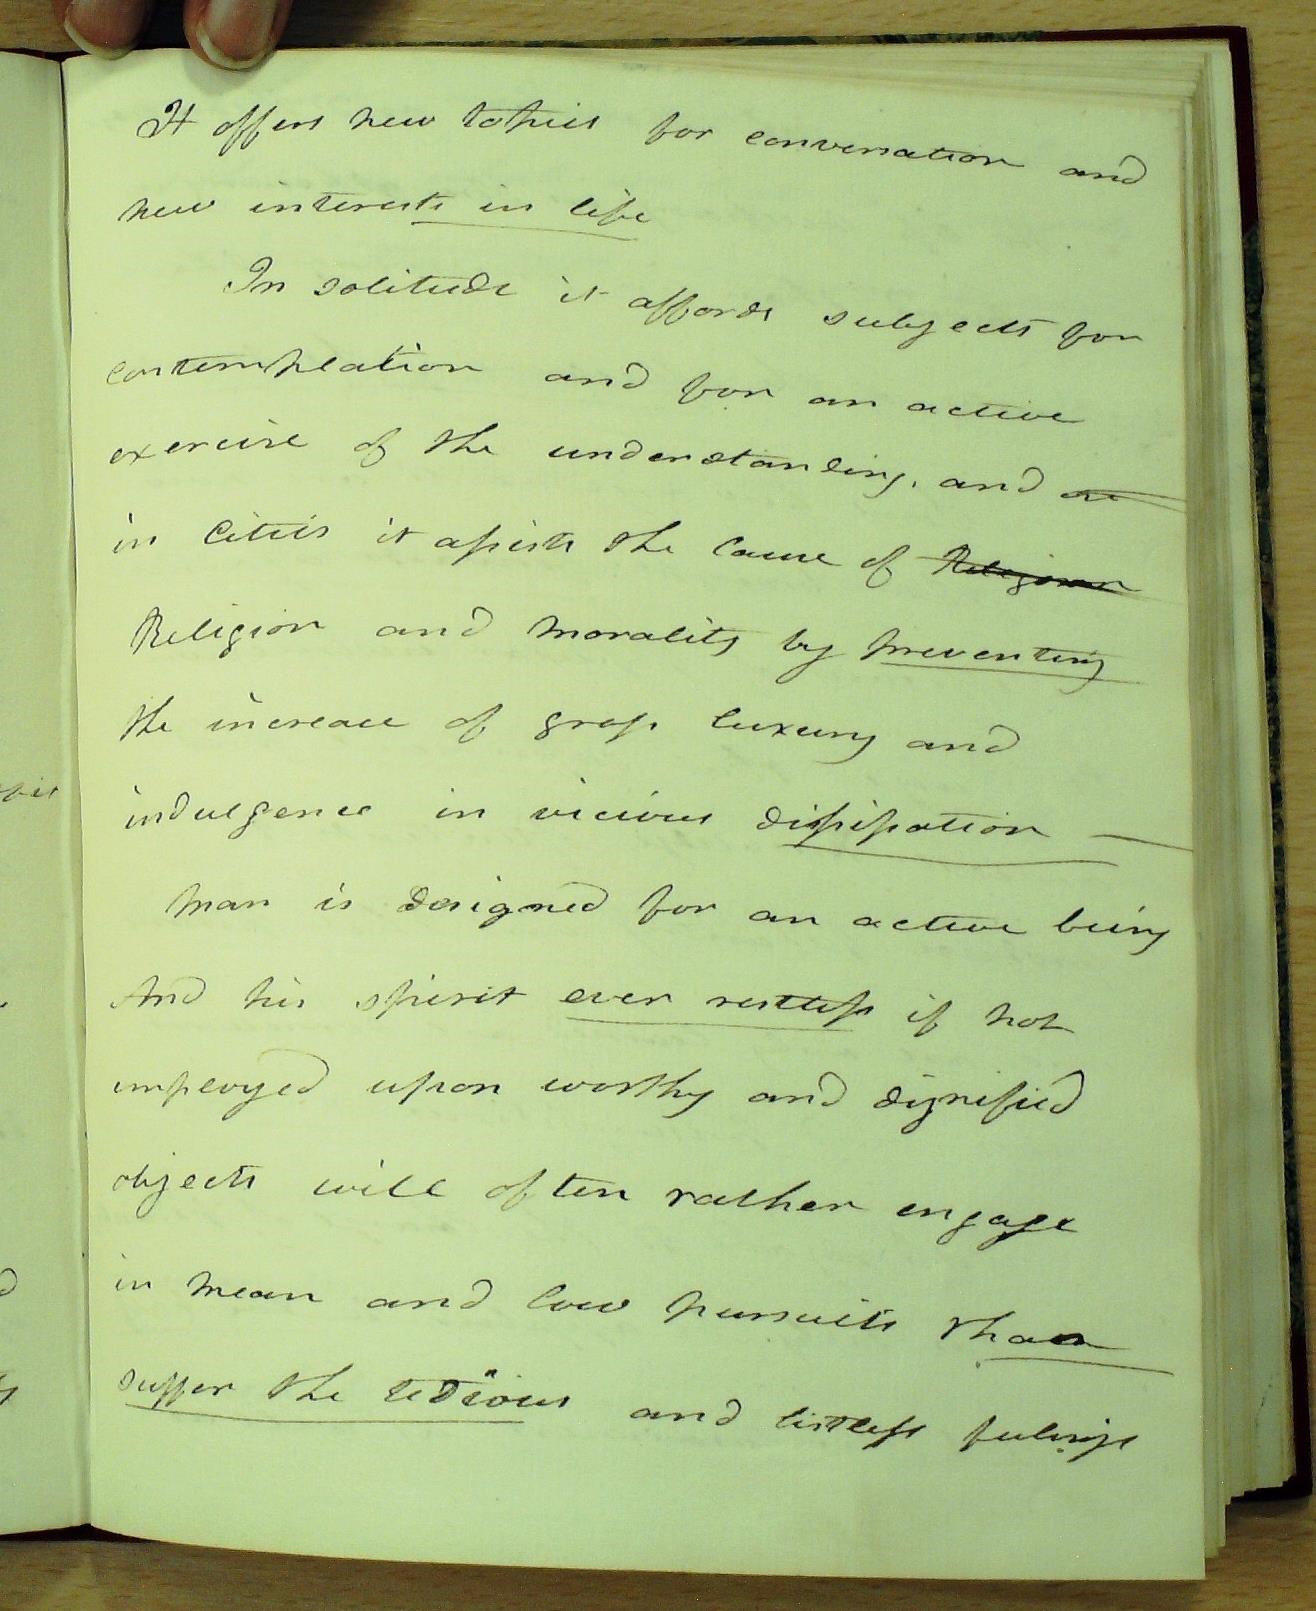 It offers new topics for conversation and
new interests in life
In solitude it affords subjects for
contemplation and for an active
exercise of the understanding, and
in Cities it assists the cause of Religion
Religion and morality by preventing
the increase of gross luxury and
indulgence in vicious dissipation —
Man is designed for an active being
And his spirit ever restless if not
employed upon worthy and dignified
objects will often rather engage
in mean and low pursuits than
suffer the tedious and listless feelings